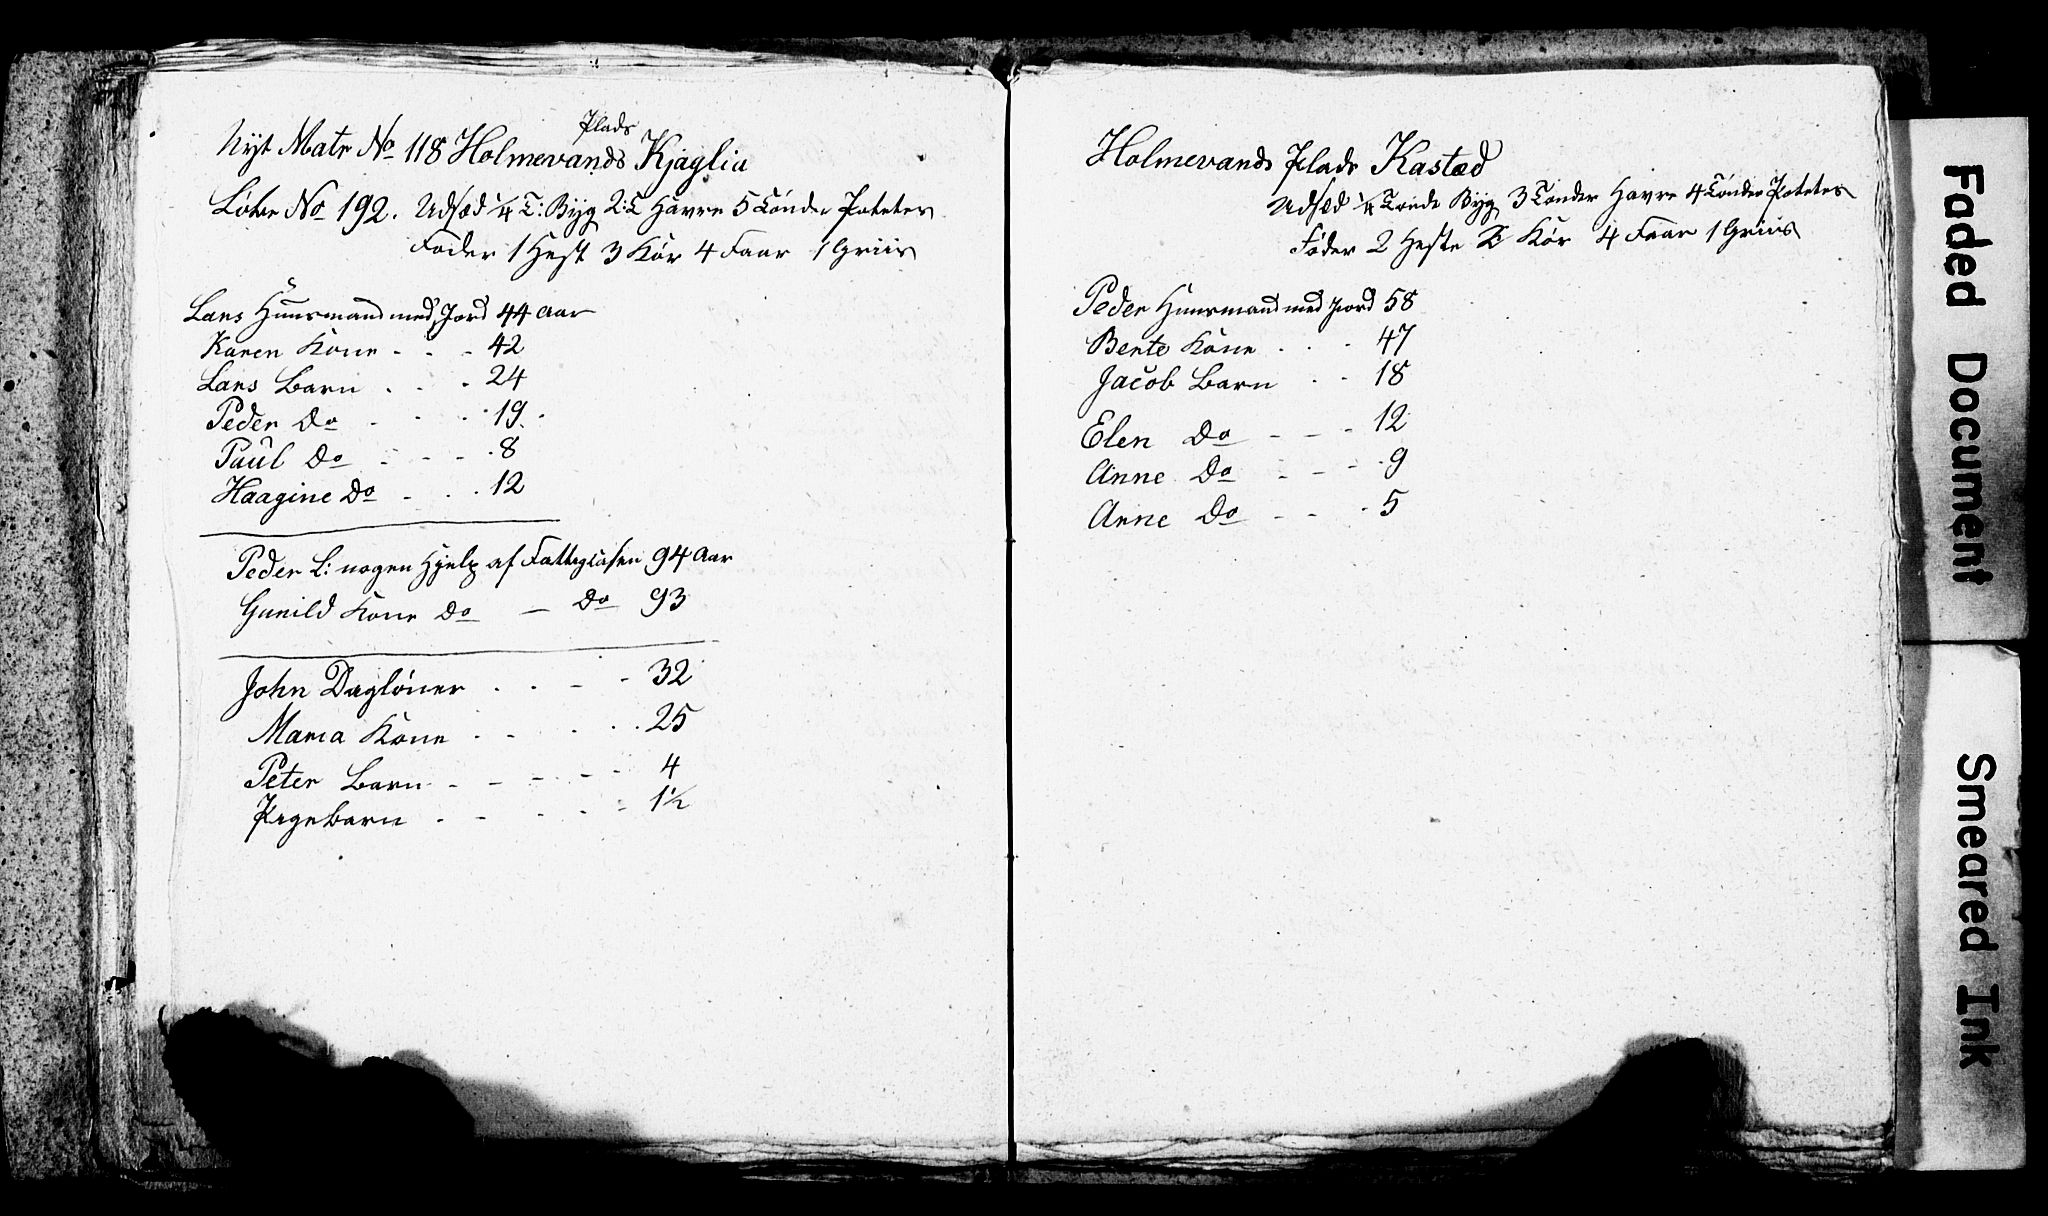 Nyt Matr No 118 Holmevands Plads Kjaglia
Løbe No 192. Udsæd 1/4 T: Byg 2: T Havre 5 Tønder Poteter
Føder 1 Hest 3 Kør 4 Faar 1 Griis
Lars Huusmand med Jord 44 Aar
Karen Kone - - - 42
Lars Barn . . . 24
Peder Do - - - 19.
Paul Do - - - 8
Haagine Do - . . 12
Peder L: nogen Hjelp af Fattigkasen 94 Aar
Gunild Kone Do — Do 93
John Dagløner . . - - 32
Maria Kone . - . . . 25
Peter Barn - - - - - 4
Pigebarn . - . - - 1½
Holmevands Plads Kastad
Udsæd 1/4 Tønde Byg 3 Tønder Havre 4 Tønder Poteter
Føder 2 Heste Kør 4 Faar 1 Griis
Peder Huusmand med Jord 58
Bente Kone . . - 47
Jacob Barn . - 18
Elen Do - - - 12
Anne Do - - - 9
Anne Do - - . 5
Faded Document
Smeared Ink